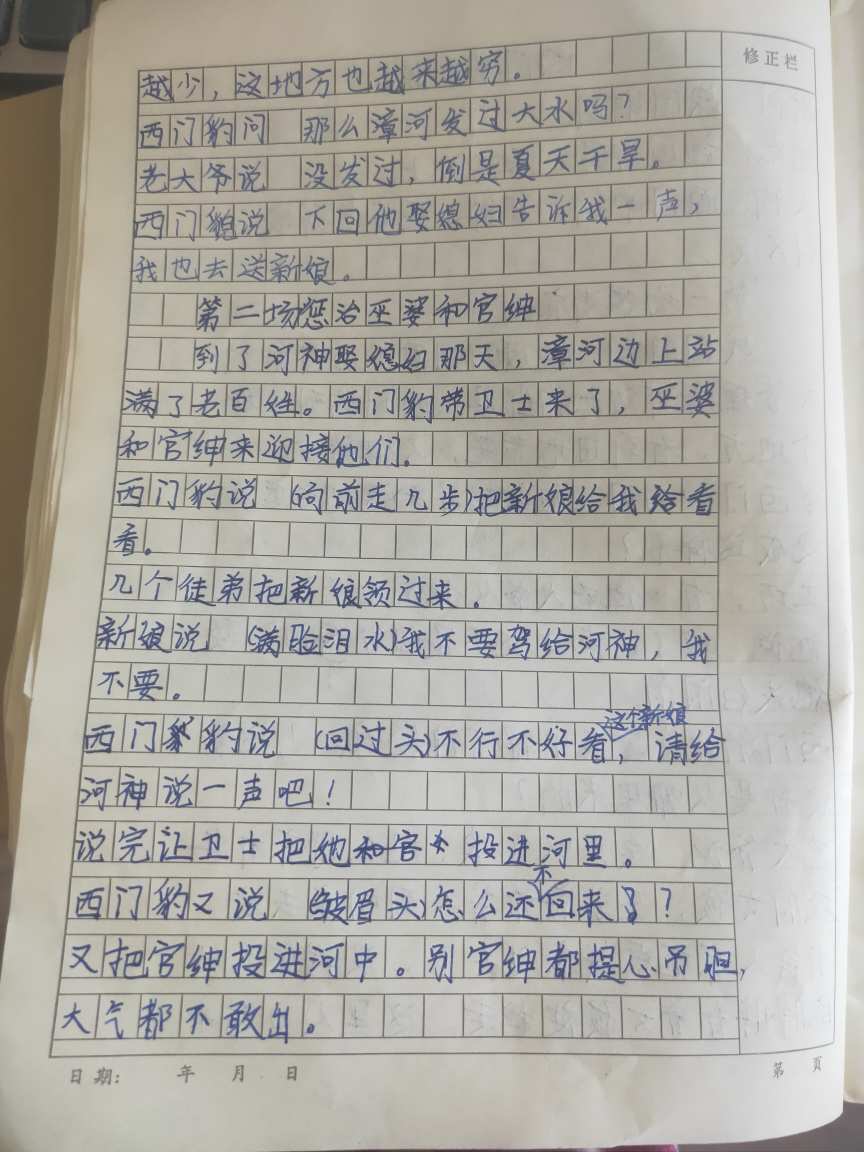 修正栏
越少，这地方也越来越穷。
西门豹问 那么漳河发过大水吗？
老大爷说 没发过，倒是夏天干旱。
西门豹说 下回他娶媳妇告诉我一声，
我也去送新娘。
第二场惩治巫婆和官绅
到了河神娶媳妇那天，漳河边上站
满了老百姓。西门豹带卫士来了，巫婆
和官绅来迎接他们。
西门豹说 (向前走几步)把新娘给我给看
看。
几个徒弟把新娘领过来.
新娘说 (满脸泪水)我不要驾给河神，我
不要。
这个新娘
西门豹说 (回过头)不行不好看，请给
河神说一声吧！
说完让卫士把她 投进河里。
西门豹又说 (皱眉头)怎么还不回来了？
又把官绅投进河中。别官绅都提心吊胆，
大气都不敢出。
日期： 年 月 日
第 页